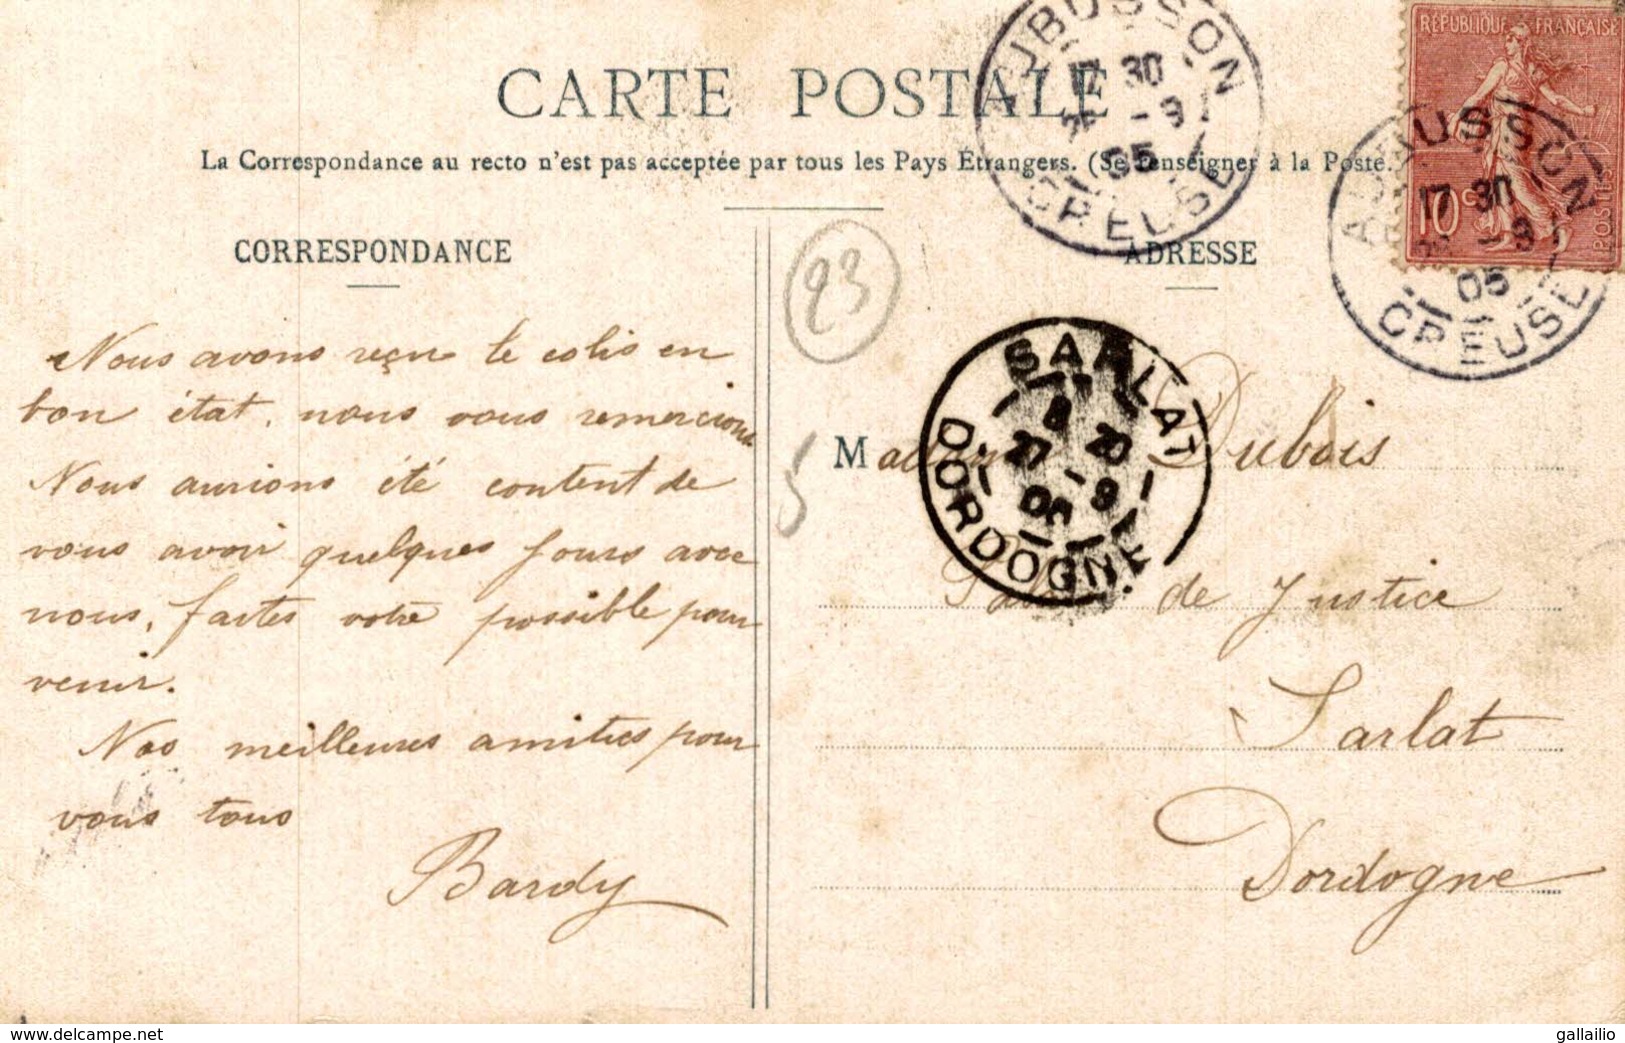 CARTE POSTALE
La Correspondance au recto n'est pas acceptée par tous les Pays Étrangers. (Se renseigner à la Poste.
CORRESPONDANCE
Nous avons reçu le colis en
bon état, nous vous remercions
Nous aurions été content de
vous avoir quelques jours avec
nous, faites votre possible pour
venir.
Nos meilleures amitiés pour
vous tous
Bardy
23
5
ADRESSE
Madame Dubois
Palais de Justice
Sarlat
Dordogne
AUBUSSON
17 30
-9
05
CREUSE
RÉPUBLIQUE FRANÇAISE
10c
POSTES
AUBUSSON
17 30
-9
05
CREUSE
SARLAT
8 20
27 -9
05
DORDOGNE
delcampe.net
gallailio